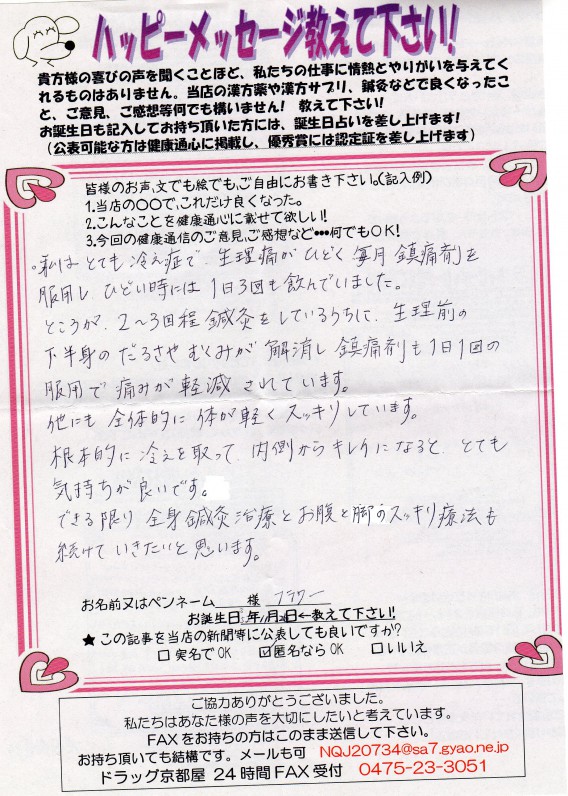 ハッピーメッセージ教えて下さい!
貴方様の喜びの声を聞くことほど、私たちの仕事に情熱とやりがいを与えてく
れるものはありません。当店の漢方薬や漢方サプリ、鍼灸などで良くなったこ
と、ご意見、ご感想等何でも構いません! 教えて下さい!
お誕生日も記入してお持ち頂いた方には、誕生日占いを差し上げます!
(公表可能な方は健康通心に掲載し、優秀賞には認定証を差し上げます)
皆様のお声、文でも絵でも、ご自由にお書き下さい。(記入例)
1.当店の〇〇で、これだけ良くなった。
2.こんなことを健康通心に載せて欲しい!
3.今回の健康通信のご意見、ご感想など•••何でもOK!
。私は とても 冷え症で、生理痛が ひどく 毎月 鎮痛剤を
服用し、ひどい時には 1日3回も 飲んでいました。
ところが、2~3回程 鍼灸を しているうちに、生理前の
下半身の だるさや むくみが 解消し 鎮痛剤も 1日1回の
服用で 痛みが 軽減 されています。
他にも 全体的に 体が 軽く スッキリしています。
根本的に 冷えを 取って、内側から キレイに なると、とても
気持ちが 良いです。
できる限り 全身鍼灸治療と お腹と 脚のスッキリ療法も
続けて いきたいと 思います。
お名前又はペンネーム 様 フラワー
お誕生日 年 月 日←教えて下さい!
★ この記事を当店の新聞等に公表しても良いですか?
□ 実名でOK ☑匿名ならOK □いいえ
ご協力ありがとうございました。
私たちはあなた様の声を大切にしたいと考えています。
FAXをお持ちの方はこのまま送信して下さい。
お持ち頂いても結構です。メールも可 NQJ20734@sa7.gyao.ne.jp
ドラッグ京都屋 24時間FAX受付 0475-23-3051